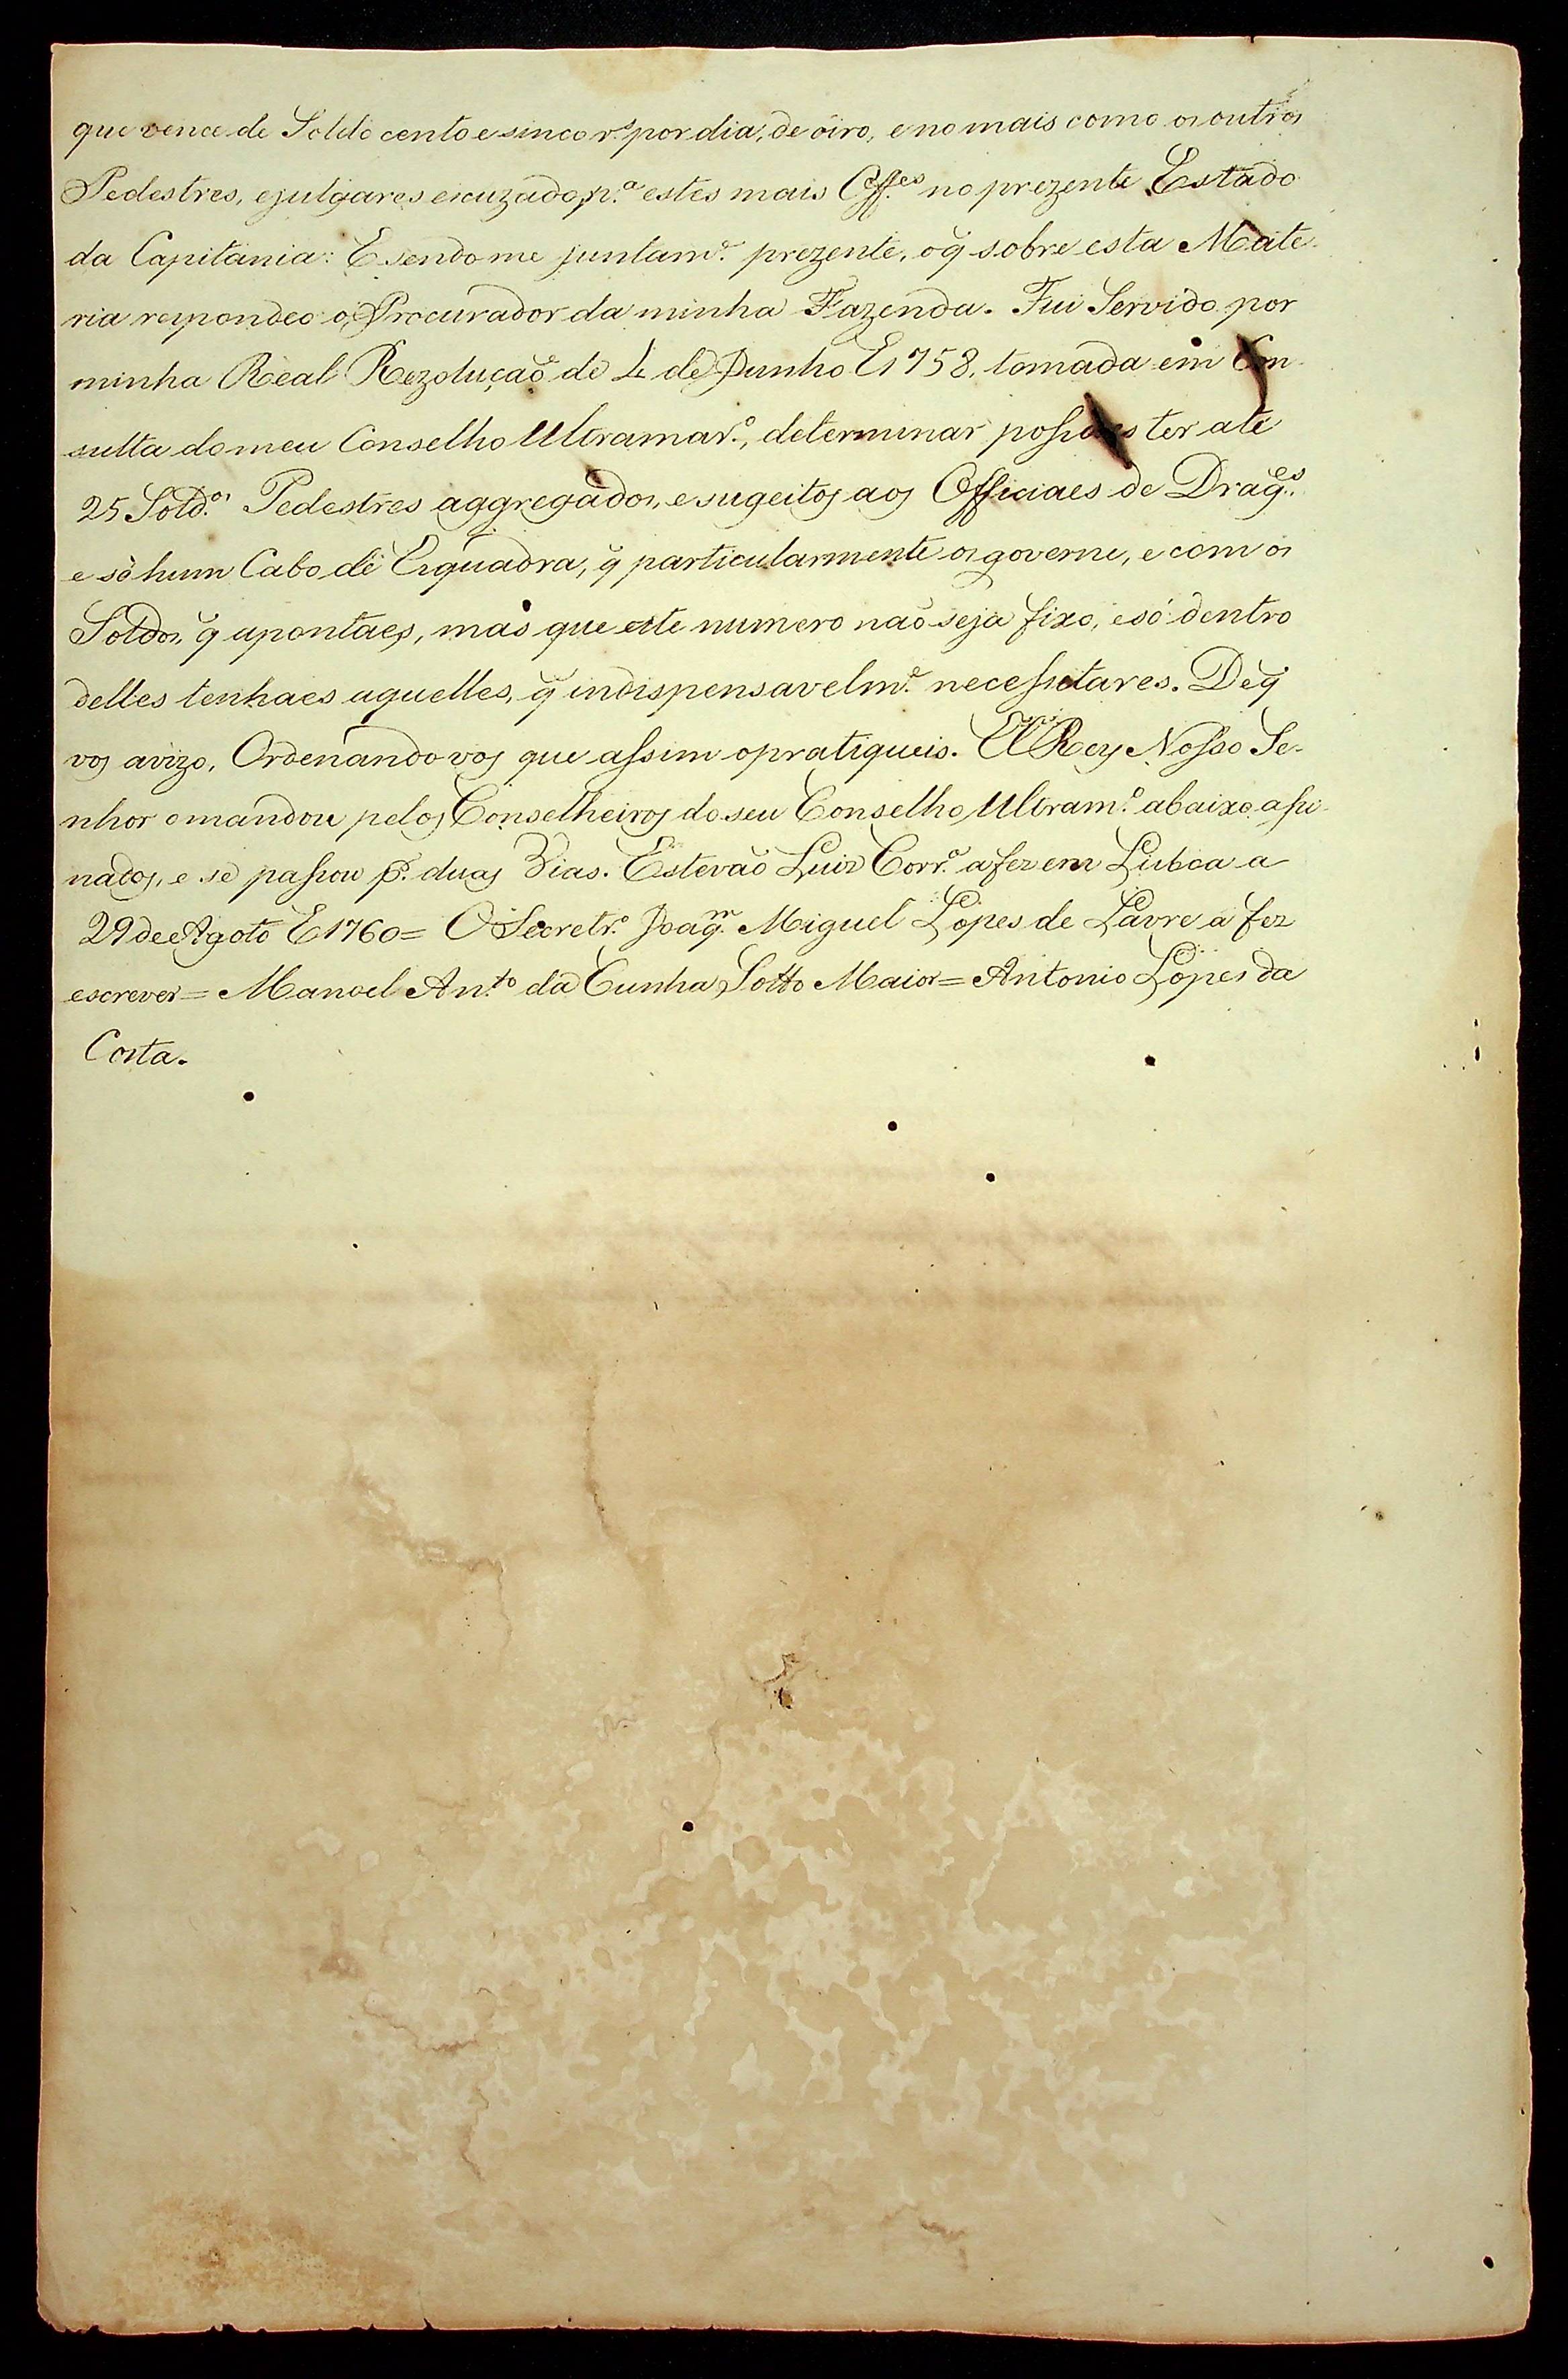 que vence de Soldo cento e sinco r.s por dia, de oiro, e no mais como os outros
Pedestres, e julgares escuzado p.a estes mais Off.es no prezente Estado
da Capitania: E sendo me juntam.e prezente, o q̃ sobre esta Mate-
ria respondeo o Procurador da minha Fazenda. Fui Servido por
minha Real Rezolução de 4 de Junho E1758, tomada em Con-
sulta do meu Conselho Ultramar.o, determinar possaes ter até
25 Sold.os Pedestres aggregados, e sugeitos aos Officiaes de Drag.es
e só hum Cabo de Esquadra, q̃ particularmente os governe, e com os
Soldos q̃ apontaes, mas que este numero não seja fixo, e só dentro
delles tenhaes aquelles, q̃ indispensavelm.e necessitares. De q̃
vos avizo, Ordenando vos que assim o pratiqueis. El Rey Nosso Se-
nhor o mandou pelos Conselheiros do seu Conselho Ultram.o abaixo assi-
nados, e se passou p. duas Vias. Estevão Luis Corr.a a fez em Lisboa a
29 de Agoto E1760= O Secretr.o Joaq.m Miguel Lopes de Lavre a fez
escrever= Manoel An.to da Cunha Sotto Maior= Antonio Lopes da
Costa.